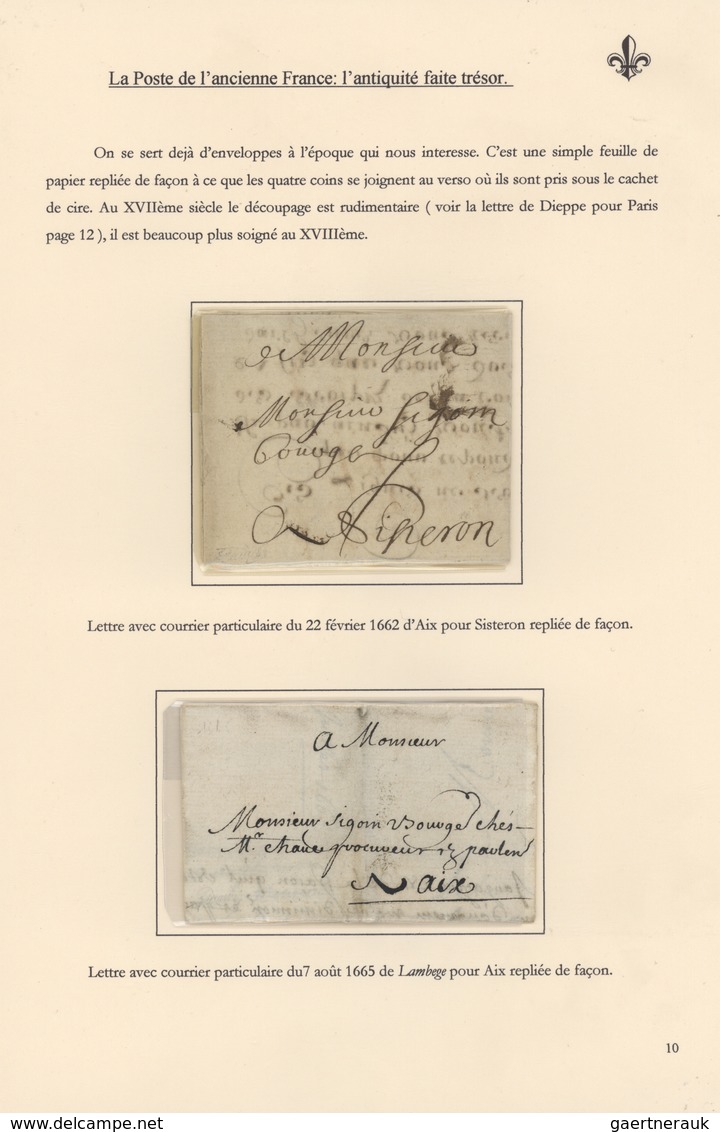 La Poste de l'ancienne France: l'antiquité faite trésor.
On se sert dejà d'enveloppes à l'époque qui nous interesse. C'est une simple feuille de
papier repliée de façon à ce que les quatre coins se joignent au verso où ils sont pris sous le cachet
de cire. Au XVIIème siècle le découpage est rudimentaire ( voir la lettre de Dieppe pour Paris
page 12 ), il est beaucoup plus soigné au XVIIIème.
Monsieur
Monsieur Sigoin
Bouvge
A Sisteron
Lettre avec courrier particulaire du 22 février 1662 d'Aix pour Sisteron repliée de façon.
A Monsieur
Monsieur Sigoin Bouvge chés
Mr. chaue procureur
aix
Lettre avec courrier particulaire du7 août 1665 de Lambege pour Aix repliée de façon.
10
delcampe.net
gaertnerauk